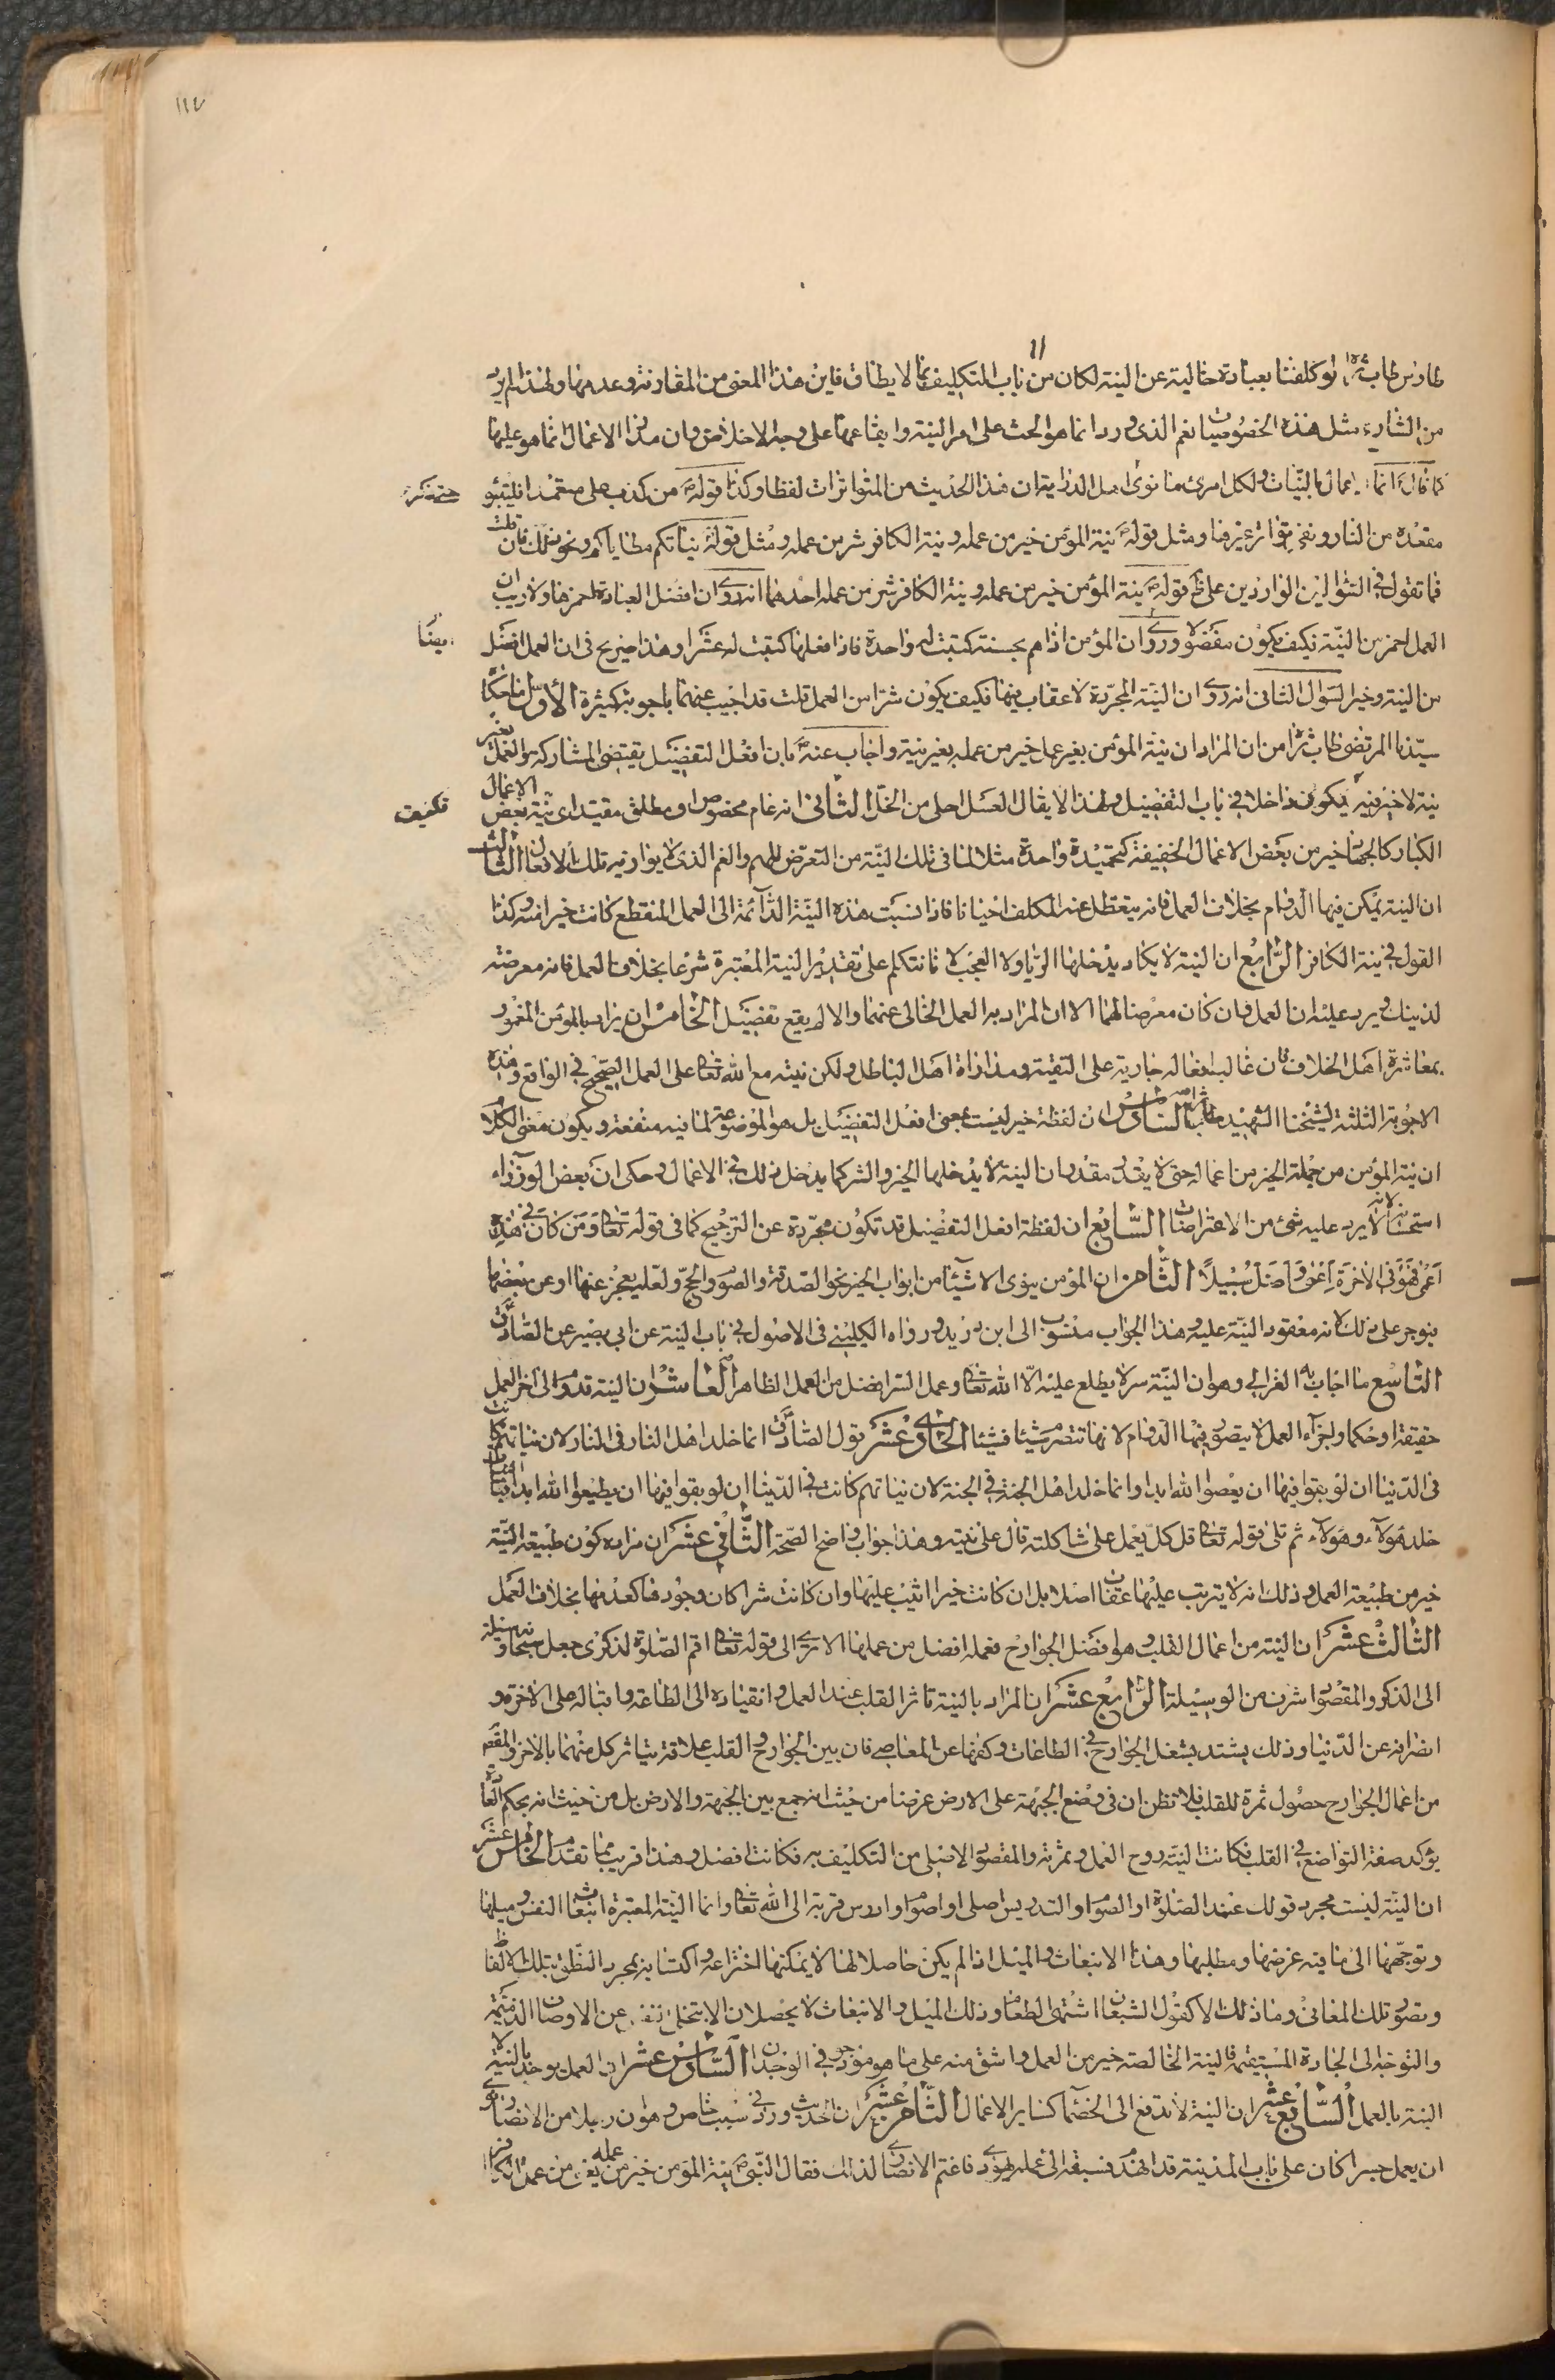 ١١٧
طاوس طاب ثراه لو كلفنا بعبادة خالية عن النية لكان من باب التكليف بما لا يطاق فاين هذا المعنى من المقارنة وعدمها ولهذا لم يرد
من الشارع مثل هذه الخصوصيات نعم الذي ورد انما هو الحث على امر النية وايقاعها على وجه الاخلاص وان مدار الاعمال انما هو عليها
كما قال انما الاعمال بالنيات ولكل امرئ ما نوى اهل الدراية ان هذا الحديث من المتواترات لفظا وكذا قوله من كذب على متعمدا فليتبوء
مقعده من النار ونفى تواتر غيرها ومثل قوله نية المؤمن خير من عمله ونية الكافر شر من عمله ومثل قوله نياتكم مطاياكم ونحو ذلك فان قلت
فما تقول في السؤالين الواردين على قوله نية المؤمن خير من عمله ونية الكافر شر من عمله احدهما انه روى ان افضل العبادة احمزها ولا ريب ان
العمل احمز من النية فكيف يكون مفضولا وروى ان المؤمن اذا هم بحسنة كتبت له واحدة فاذا فعلها كتبت له عشرا وهذا صريح في ان العمل افضل
من النية وخير السؤال الثاني انه روى ان النية المجردة لا عقاب فيها فكيف يكون شرا من العمل قلت قد اجيب عنهما باجوبة كثيرة الأول ما حكا
سيدنا المرتضى طاب ثراه من ان المراد ان نية المؤمن بغير عمل خير من عمله بغير نية واجاب عنه بان افعل التفضيل يقتضي المشاركه والعمل بغير
نية لا خير فيه فكيف يكون داخلا في باب التفضيل ولهذا لا يقال العسل احلى من الخل الثاني انه عام مخصوص او مطلق مقيد اى نية بعض الاعمال
الكبار كالجهاد خير من بعض الاعمال الخفيفة كتحميدة واحدة مثلا لما في تلك النية من التعرض للهم والغم الذي لا يوازنه تلك الافعال الثالث
ان النية يمكن فيها الدوام بخلاف العمل فانه يتعطل عنه المكلف احيانا فاذا نسبت هذه النية الدائمة الى العمل المنقطع كانت خيرا منه وكذا
القول في نية الكافر الرابع ان النية لا يكاد يدخلها الريا ولا العجب لانا نتكلم على تقدير النية المعتبرة شرعا بخلاف العمل فانه معرضه
لذينك ويرد عليه ان العمل وان كان معرضا لهما الا ان المراد به العمل الخالى عنهما والا لم يقع تفضيل الخامس ان يراد بالمؤمن المغمور
بمعاشرة اهل الخلاف فان غالب افعاله جارية على التقية ومداراة اهل الباطل ولكن نيته مع الله تعالى على العمل الصحيح في الواقع وهذه
الاجوبة الثلثة لشيخنا الشهيد طاب ثراه السادس ان لفظة خير ليست بمعنى افعل التفضيل بل هو الموضوعة لما فيه منفعة ويكون معنى الكلام
ان نية المؤمن من جملة الخير من اعماله حتى لا يقدر مقدر ان النية لا يدخلها الخير والشر كما يدخل ذلك في الاعمال وحكى ان بعض الوزراء
استحسنه لانه لا يرد عليه شئ من الاعتراضات السابع ان لفظة افعل التفضيل قد تكون مجردة عن الترجيح كما في قوله تعالى ومن كان في هذه
اعمى فهو في الاخرة اعمى واضل سبيلا الثامن ان المؤمن ينوى الاشيآء من ابواب الخير نحو الصدقة والصوم والحج ولعله يعجز عنها او عن بعضها
فيوجر على ذلك لانه معقود النية عليه وهذا الجواب منسوب الى ابن دريد ورواه الكليني في الاصول في باب النية عن ابي بصير عن الصادق
التاسع ما اجاب به الغزالي وهو ان النية سر لا يطلع عليه الا الله تعالى وعمل السر افضل من العمل الظاهر العاشر ان النية تدوم الى اخر العمل
حقيقة او حكما واجزآء العمل لا يتصور فيها الدوام لانها تتصرم شيئا فشيئا الحادي عشر قول الصادق انما خلد اهل النار في النار لان نياتهم كانت
في الدنيا ان لو بقوا فيها ان يعصوا الله ابدا وانما خلد اهل الجنة في الجنة لان نياتهم كانت في الدنيا ان لو بقوا فيها ان يطيعوا الله ابدا فبالنيات
خلد هولآء وهولآء ثم تلى قوله تعالى قل كل يعمل على شاكلته قال على نيته وهذا جواب واضح الصحة الثاني عشر ان مراده كون طبيعة النية
خير من طبيعة العمل وذلك انه لا يترتب عليها عقاب اصلا بل ان كانت خيرا اثيب عليها وان كانت شرا كان وجودها كعدمها بخلاف العمل
الثالث عشر ان النية من اعمال القلب وهو افضل الجوارح فعمله افضل من عملها الا ترى الى قوله تعالى اقم الصلوة لذكرى جعل سبحانه وسيلة
الى الذكر والمقصود اشرف من الوسيلة الرابع عشر ان المراد بالنية تاثر القلب عند العمل وانقياده الى الطاعة واقباله على الاخرة و
انصرافه عن الدنيا وذلك يشتد بشغل الجوارح في الطاعات وكفها عن المعاصي فان بين الجوارح والقلب علاقة يتاثر كل منهما بالاخر والمقصود
من اعمال الجوارح حصول ثمرة للقلب فلا تظن ان في وضع الجبهة على الارض غرضا من حيث انه جمع بين الجبهة والارض بل من حيث انه بحكم العادة
يؤكد صفة التواضع في القلب فكانت النية روح العمل وثمرته والمقصود الاصلى من التكليف به فكانت افضل وهذا قريب مما تقدم الخامس عشر
ان النية ليست مجرد قولك عند الصلوة او الصوم او التدريس اصلى او اصوم او ادرس قربة الى الله تعالى وانما النية المعتبرة انبعاث النفس وميلها
وتوجهها الى ما فيه غرضها ومطلبها وهذا الانبعاث والميل اذا لم يكن حاصلا لها لا يمكنها اختراعه واكتسابه بمجرد النطق بتلك الالفاظ
وتصور تلك المعاني وما ذلك الا كقول الشبعان اشتهى الطعام وذلك الميل والانبعاث لا يحصلان الا بتخلى النفس عن الاوصاف الذميمة
والتوجه الى الجادة المستقيمة فالنية الخالصة خير من العمل واشق منه على ما هو موجود في الوجدان السادس عشر ان العمل يوجد بالنية لا
النية بالعمل السابع عشر ان النية لا تدفع الى الخصماء كساير الاعمال الثامن عشر ان الحديث ورد في سبب خاص وهو ان رجلا من الانصار نوى
ان يعمل جسرا كان على باب المدينة قد انهدم فسبقه الى عمله يهودى فاغتم الانصارى لذلك فقال النبي نية المؤمن خير من عمله يعنى من عمل الكافر
ايضا
فكيف